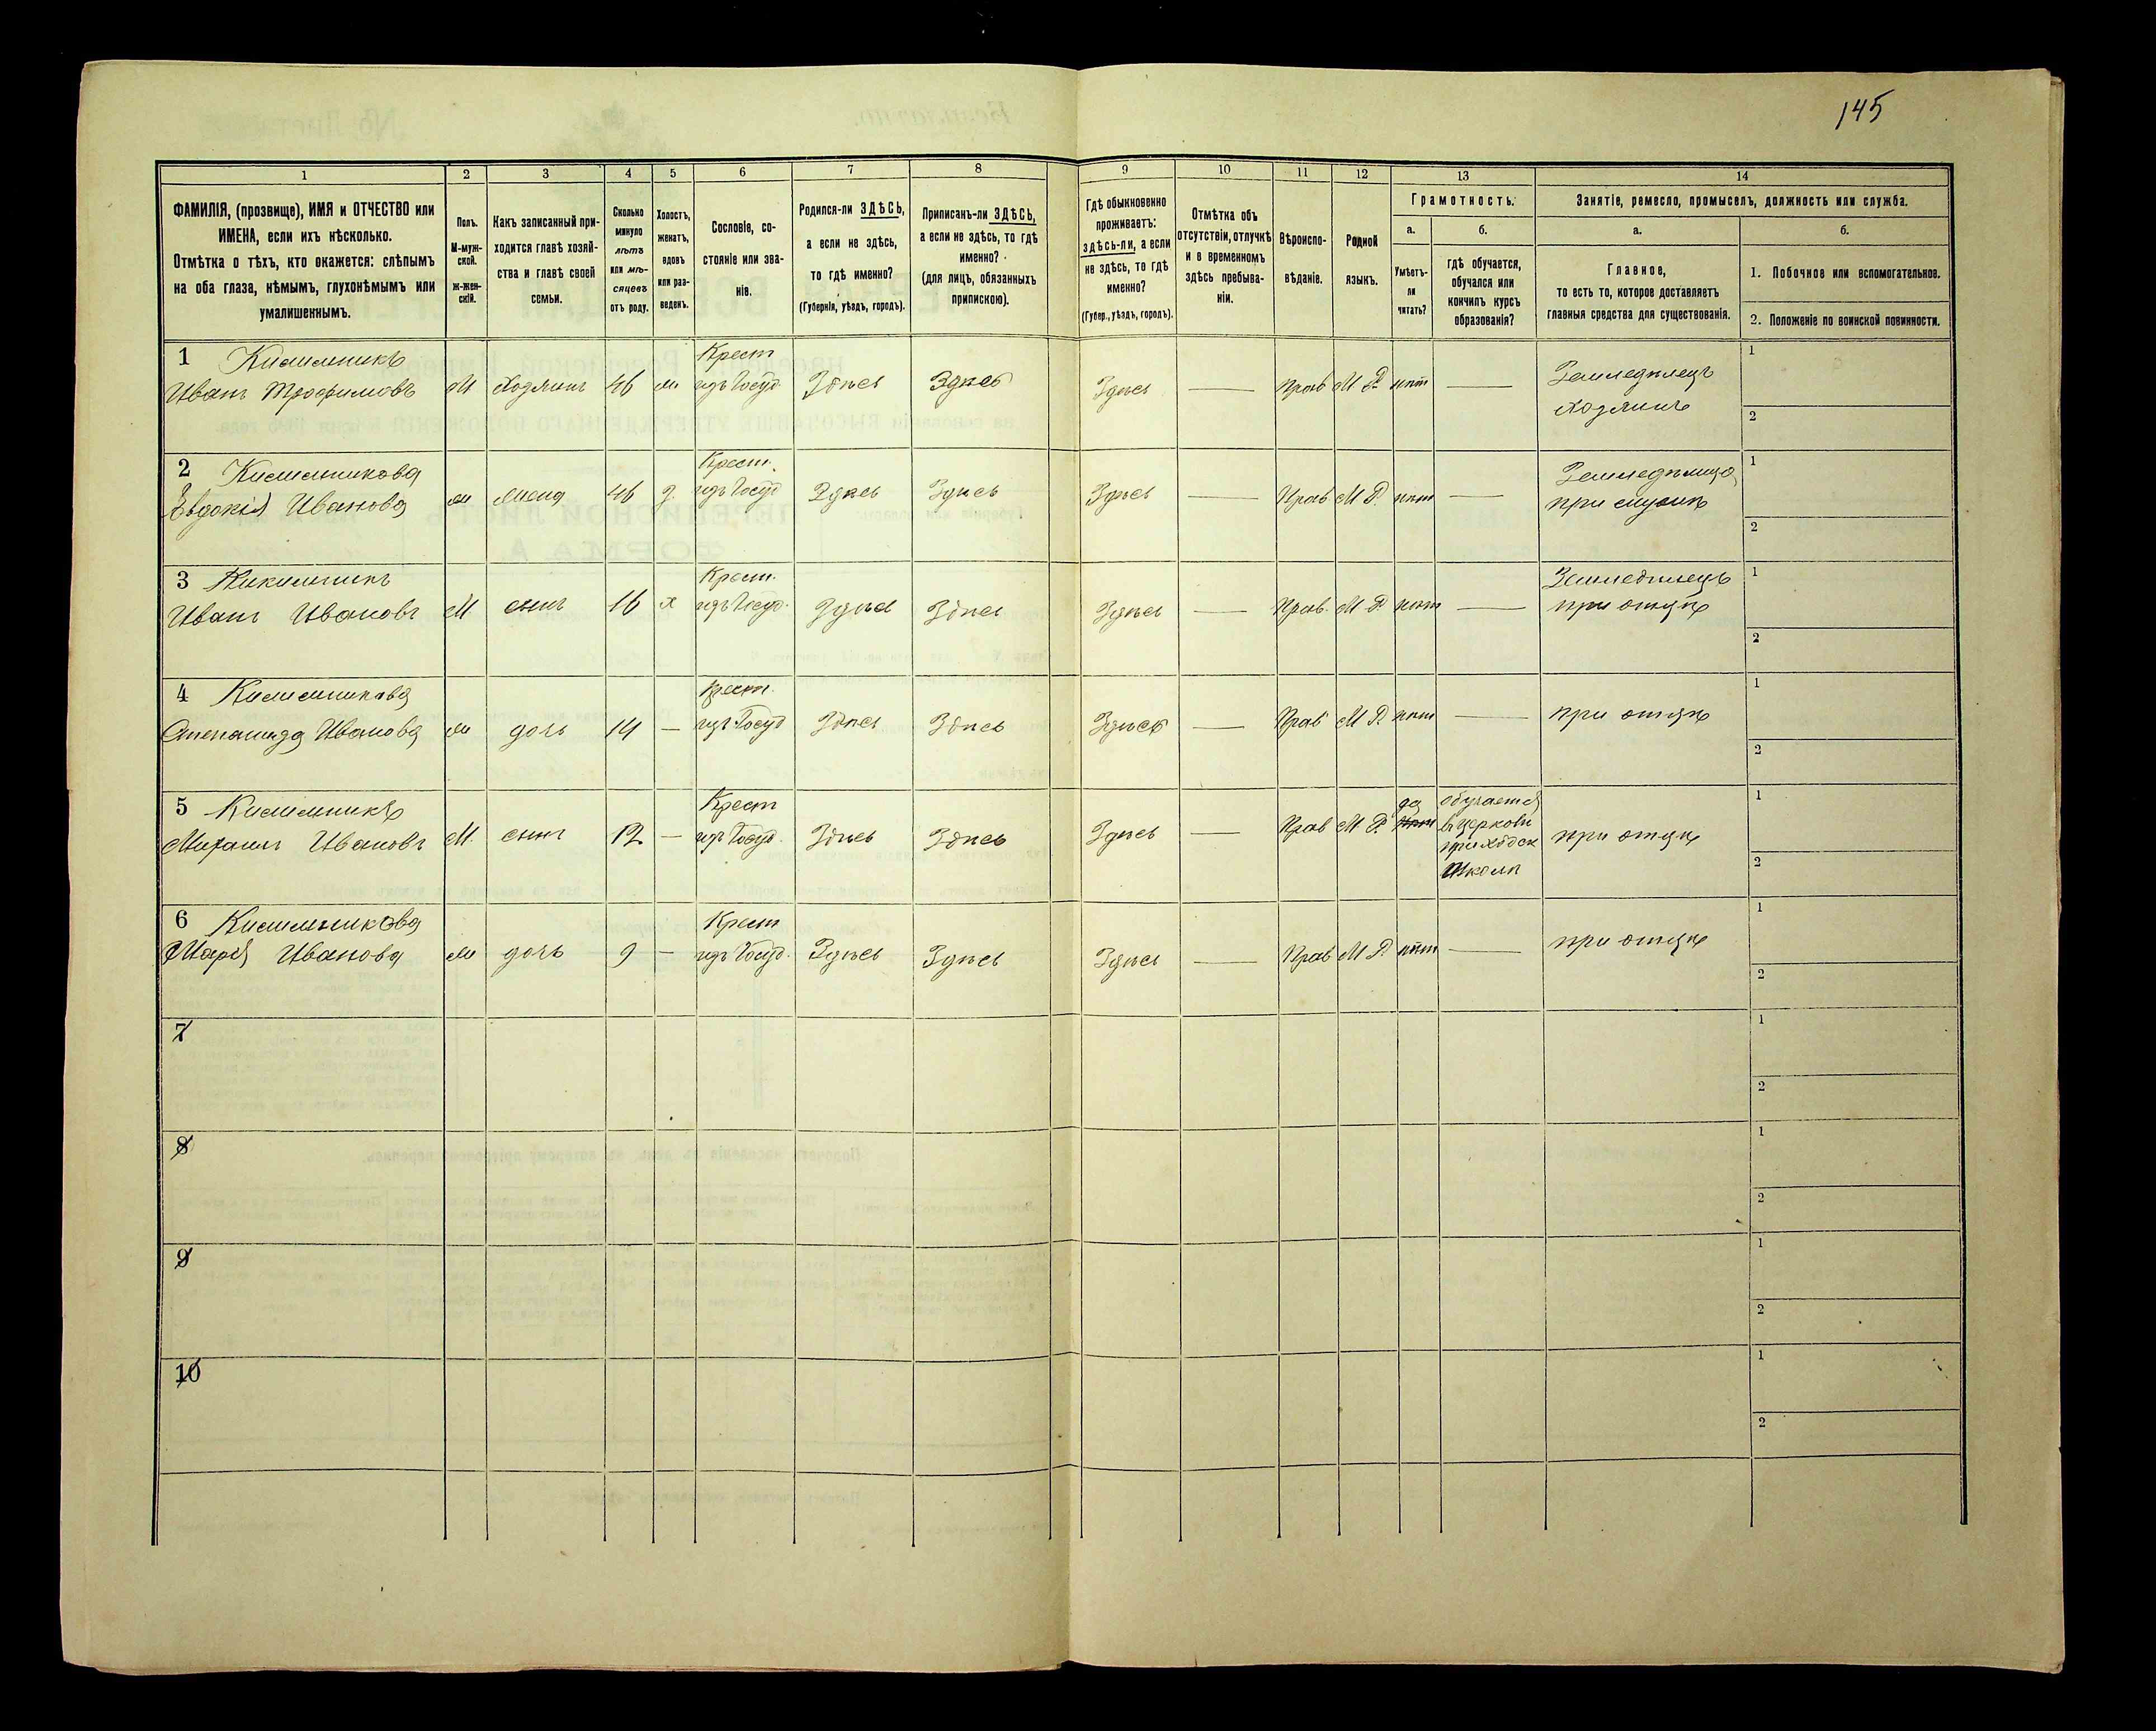 145
1
2
3
4
5
6
7
8
9
10
11
12
13
14
ФАМИЛІЯ, (прозвище), ИМЯ и ОТЧЕСТВО или
ИМЕНА, если ихъ нѣсколько.
Отмѣтка о тѣхъ, кто окажется: слѣпымъ
на оба глаза, нѣмымъ, глухонѣмымъ или
умалишеннымъ.
Полъ.
М-муж-
ской.
ж-жен-
скій.
Какъ записанный при-
ходится главѣ хозяй-
ства и главѣ своей
семьи.
Сколько
минуло
лѣтъ
или мѣ-
сяцевъ
отъ роду.
Холостъ,
женатъ,
вдовъ
или раз-
веденъ.
Сословіе, со-
стояніе или зва-
ніе.
Родился-ли ЗДѢСЬ,
а если не здѣсь,
то гдѣ именно?
(Губернія, уѣздъ, городъ).
Приписанъ-ли ЗДѢСЬ,
а если не здѣсь, то гдѣ
именно?
(для лицъ, обязанныхъ
припискою).
Гдѣ обыкновенно
проживаетъ:
здѣсь-ли, а если
не здѣсь, то гдѣ
именно?
(Губер., уѣздъ, городъ).
Отмѣтка объ
отсутствіи, отлучкѣ
и о временномъ
здѣсь пребыва-
ніи.
Вѣроиспо-
вѣданіе.
Родной
языкъ.
Грамотность.
а.
Умѣетъ-
ли
читать?
б.
гдѣ обучается,
обучался или
кончилъ курсъ
образованія?
Занятіе, ремесло, промыселъ, должность или служба.
а.
Главное,
то есть то, которое доставляетъ
главныя средства для существованія.
б.
1. Побочное или вспомогательное.
2. Положеніе по воинской повинности.
1
Иванъ Трофимовъ М хозяинъ 46 Крест Здѣсь Здѣсь Здѣсь — Прав М Р нѣт — Земледѣлецъ
хозяинъ
1
2
2
Евдокія Иванова ж жена 46 Крест. Здѣсь Здѣсь Здѣсь — Прав М Р. нѣт —
при мужѣ
1
2
3
Иванъ Ивановъ М сынъ 16 х Крест. Здѣсь Здѣсь Здѣсь — Прав. М Р. нѣт — Земледѣлецъ
при отцѣ
1
2
4
Иванова ж дочь 14 — Крест. Здѣсь Здѣсь Здѣсь — Прав М Р. нѣт — при отцѣ
1
2
5
Михаилъ Ивановъ М. сынъ 12 — Крест Здѣсь Здѣсь Здѣсь — Прав М Р. да обучается
въ церкови
приходск
школѣ
при отцѣ
1
2
6
Марія Иванова ж дочь 9 — Крест Здѣсь Здѣсь Здѣсь — Прав М Р. нѣт — при отцѣ
1
2
7
1
2
8
1
2
9
1
2
10
1
2